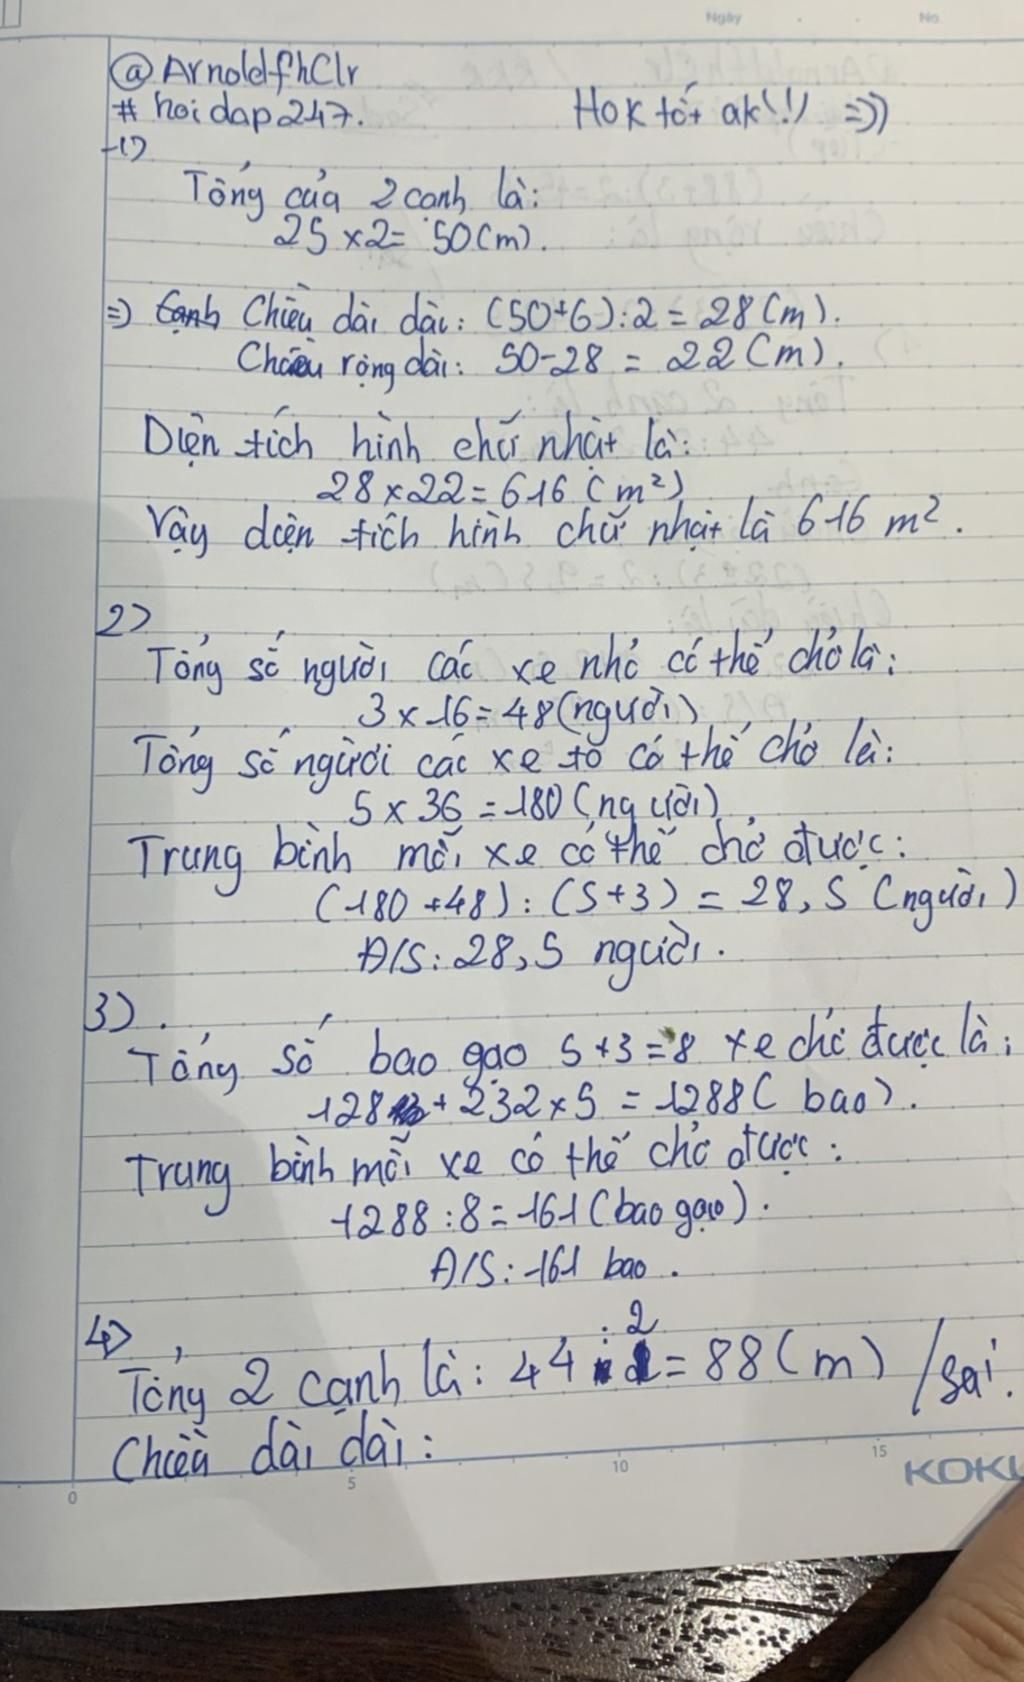 Ngày No.
@ArnoldfhClr
# hoidap247. Hok tốt ak!! =))
1)
Tổng của 2 cạnh là:
25 x 2 = 50 (m).
=> Chiều dài dài: (50+6):2 = 28 (m).
Chiều rộng dài: 50-28 = 22 (m).
Diện tích hình chữ nhật là:
28 x 22 = 616 (m²)
Vậy diện tích hình chữ nhật là 616 m².
2)
Tổng số người các xe nhỏ có thể chở là:
3 x 16 = 48 (người)
Tổng số người các xe to có thể chở là:
5 x 36 = 180 (người)
Trung bình mỗi xe có thể chở được:
(180 + 48) : (5+3) = 28,5 (người)
Đ/S: 28,5 người.
3).
Tổng số bao gạo 5+3=8 xe chở được là:
128 + 232 x 5 = 1288 ( bao).
Trung bình mỗi xe có thể chở được:
1288 : 8 = 161 (bao gạo).
Đ/S: 161 bao.
4)
Tổng 2 cạnh là: 44 : 2 = 88 (m) /sai.
Chiều dài dài:
0 5 10 15